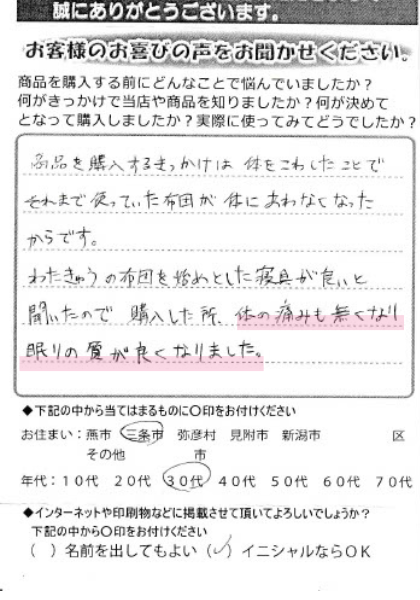 誠にありがとうございます。
お客様のお喜びの声をお聞かせください。
商品を購入する前にどんなことで悩んでいましたか？
何がきっかけで当店や商品を知りましたか？何が決めて
となって購入しましたか？実際に使ってみてどうでしたか？
商品を購入するきっかけは 体をこわしたことで
それまで使っていた布団が 体にあわなくなった
からです。
わたきゅうの布団を始めとした寝具が良いと
聞いたので 購入した所、体の痛みも無くなり
眠りの質が良くなりました。
◆下記の中から当てはまるものに〇印をお付けください
お住まい：燕市 三条市 弥彦村 見附市 新潟市 区
その他 市
年代：１０代 ２０代 ３０代 ４０代 ５０代 ６０代 ７０代
◆インターネットや印刷物などに掲載させて頂いてよろしいでしょうか？
下記の中から〇印をお付けください
（ ）名前を出してもよい（✓）イニシャルならＯＫ